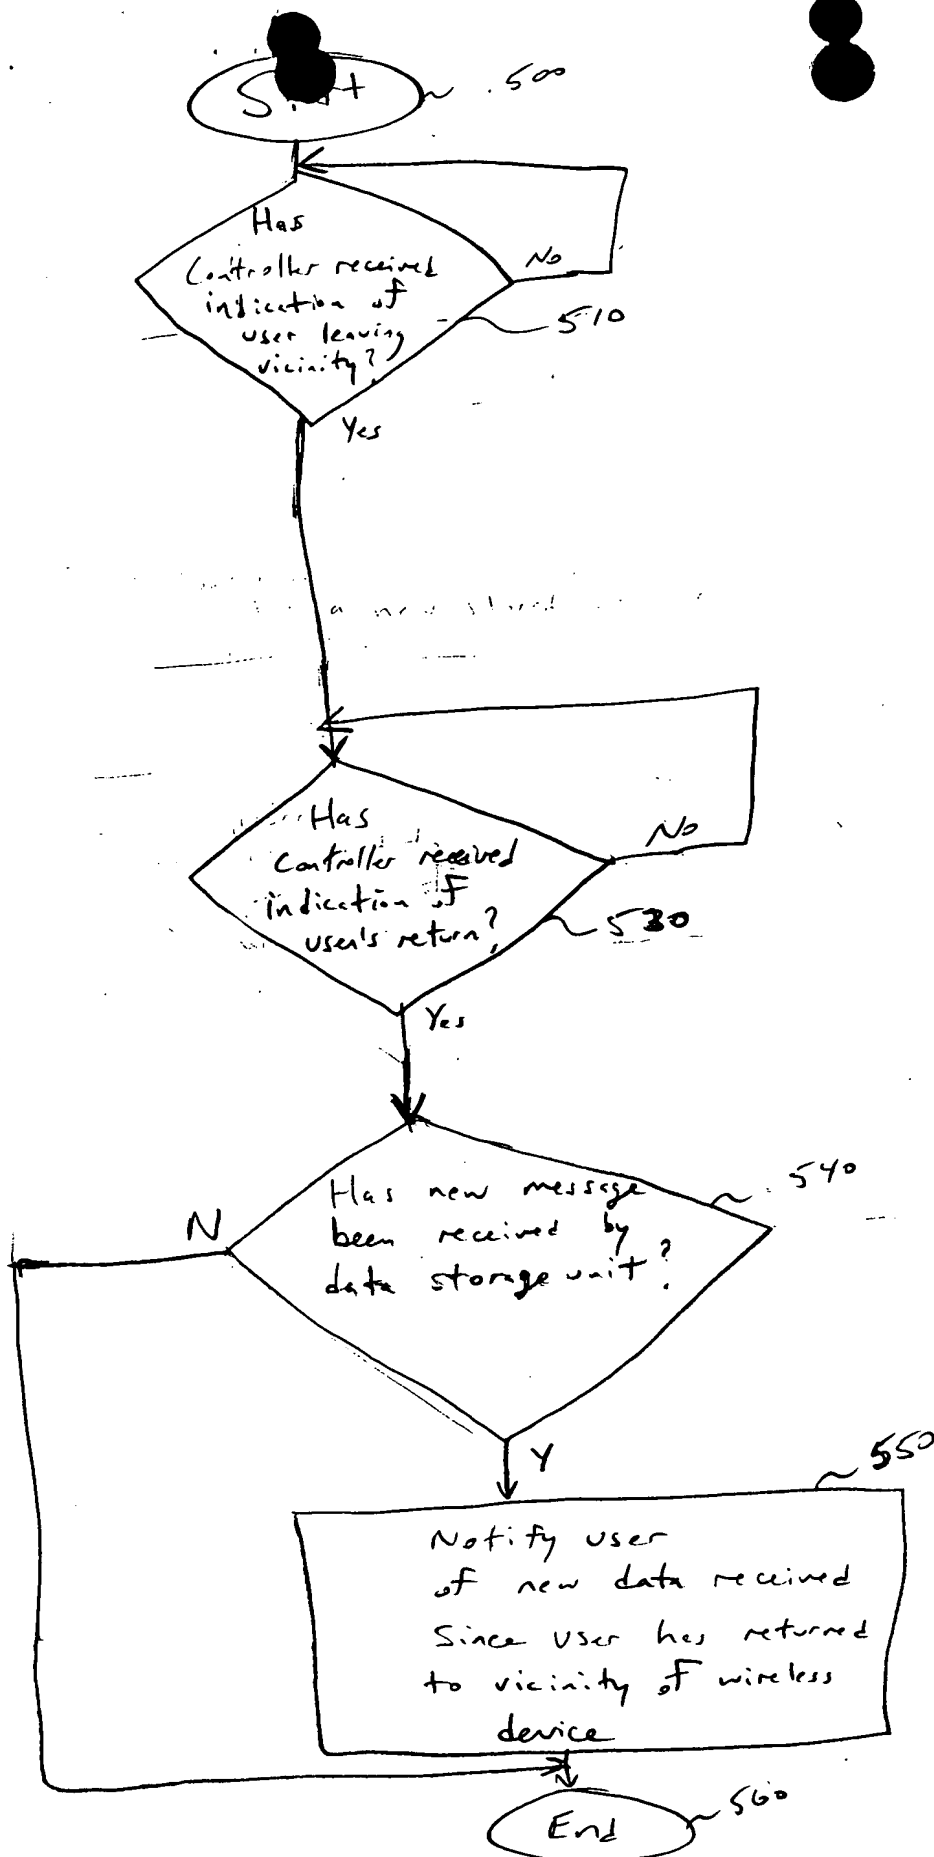 Start 500
Has
Controller received
indication of
user leaving
vicinity?
No
510
Yes
Has
Controller received
indication of
user's return?
No
530
Yes
540
Has new message
been received by
data storage unit?
N
Y
550
Notify user
of new data received
Since user has returned
to vicinity of wireless
device
560
End